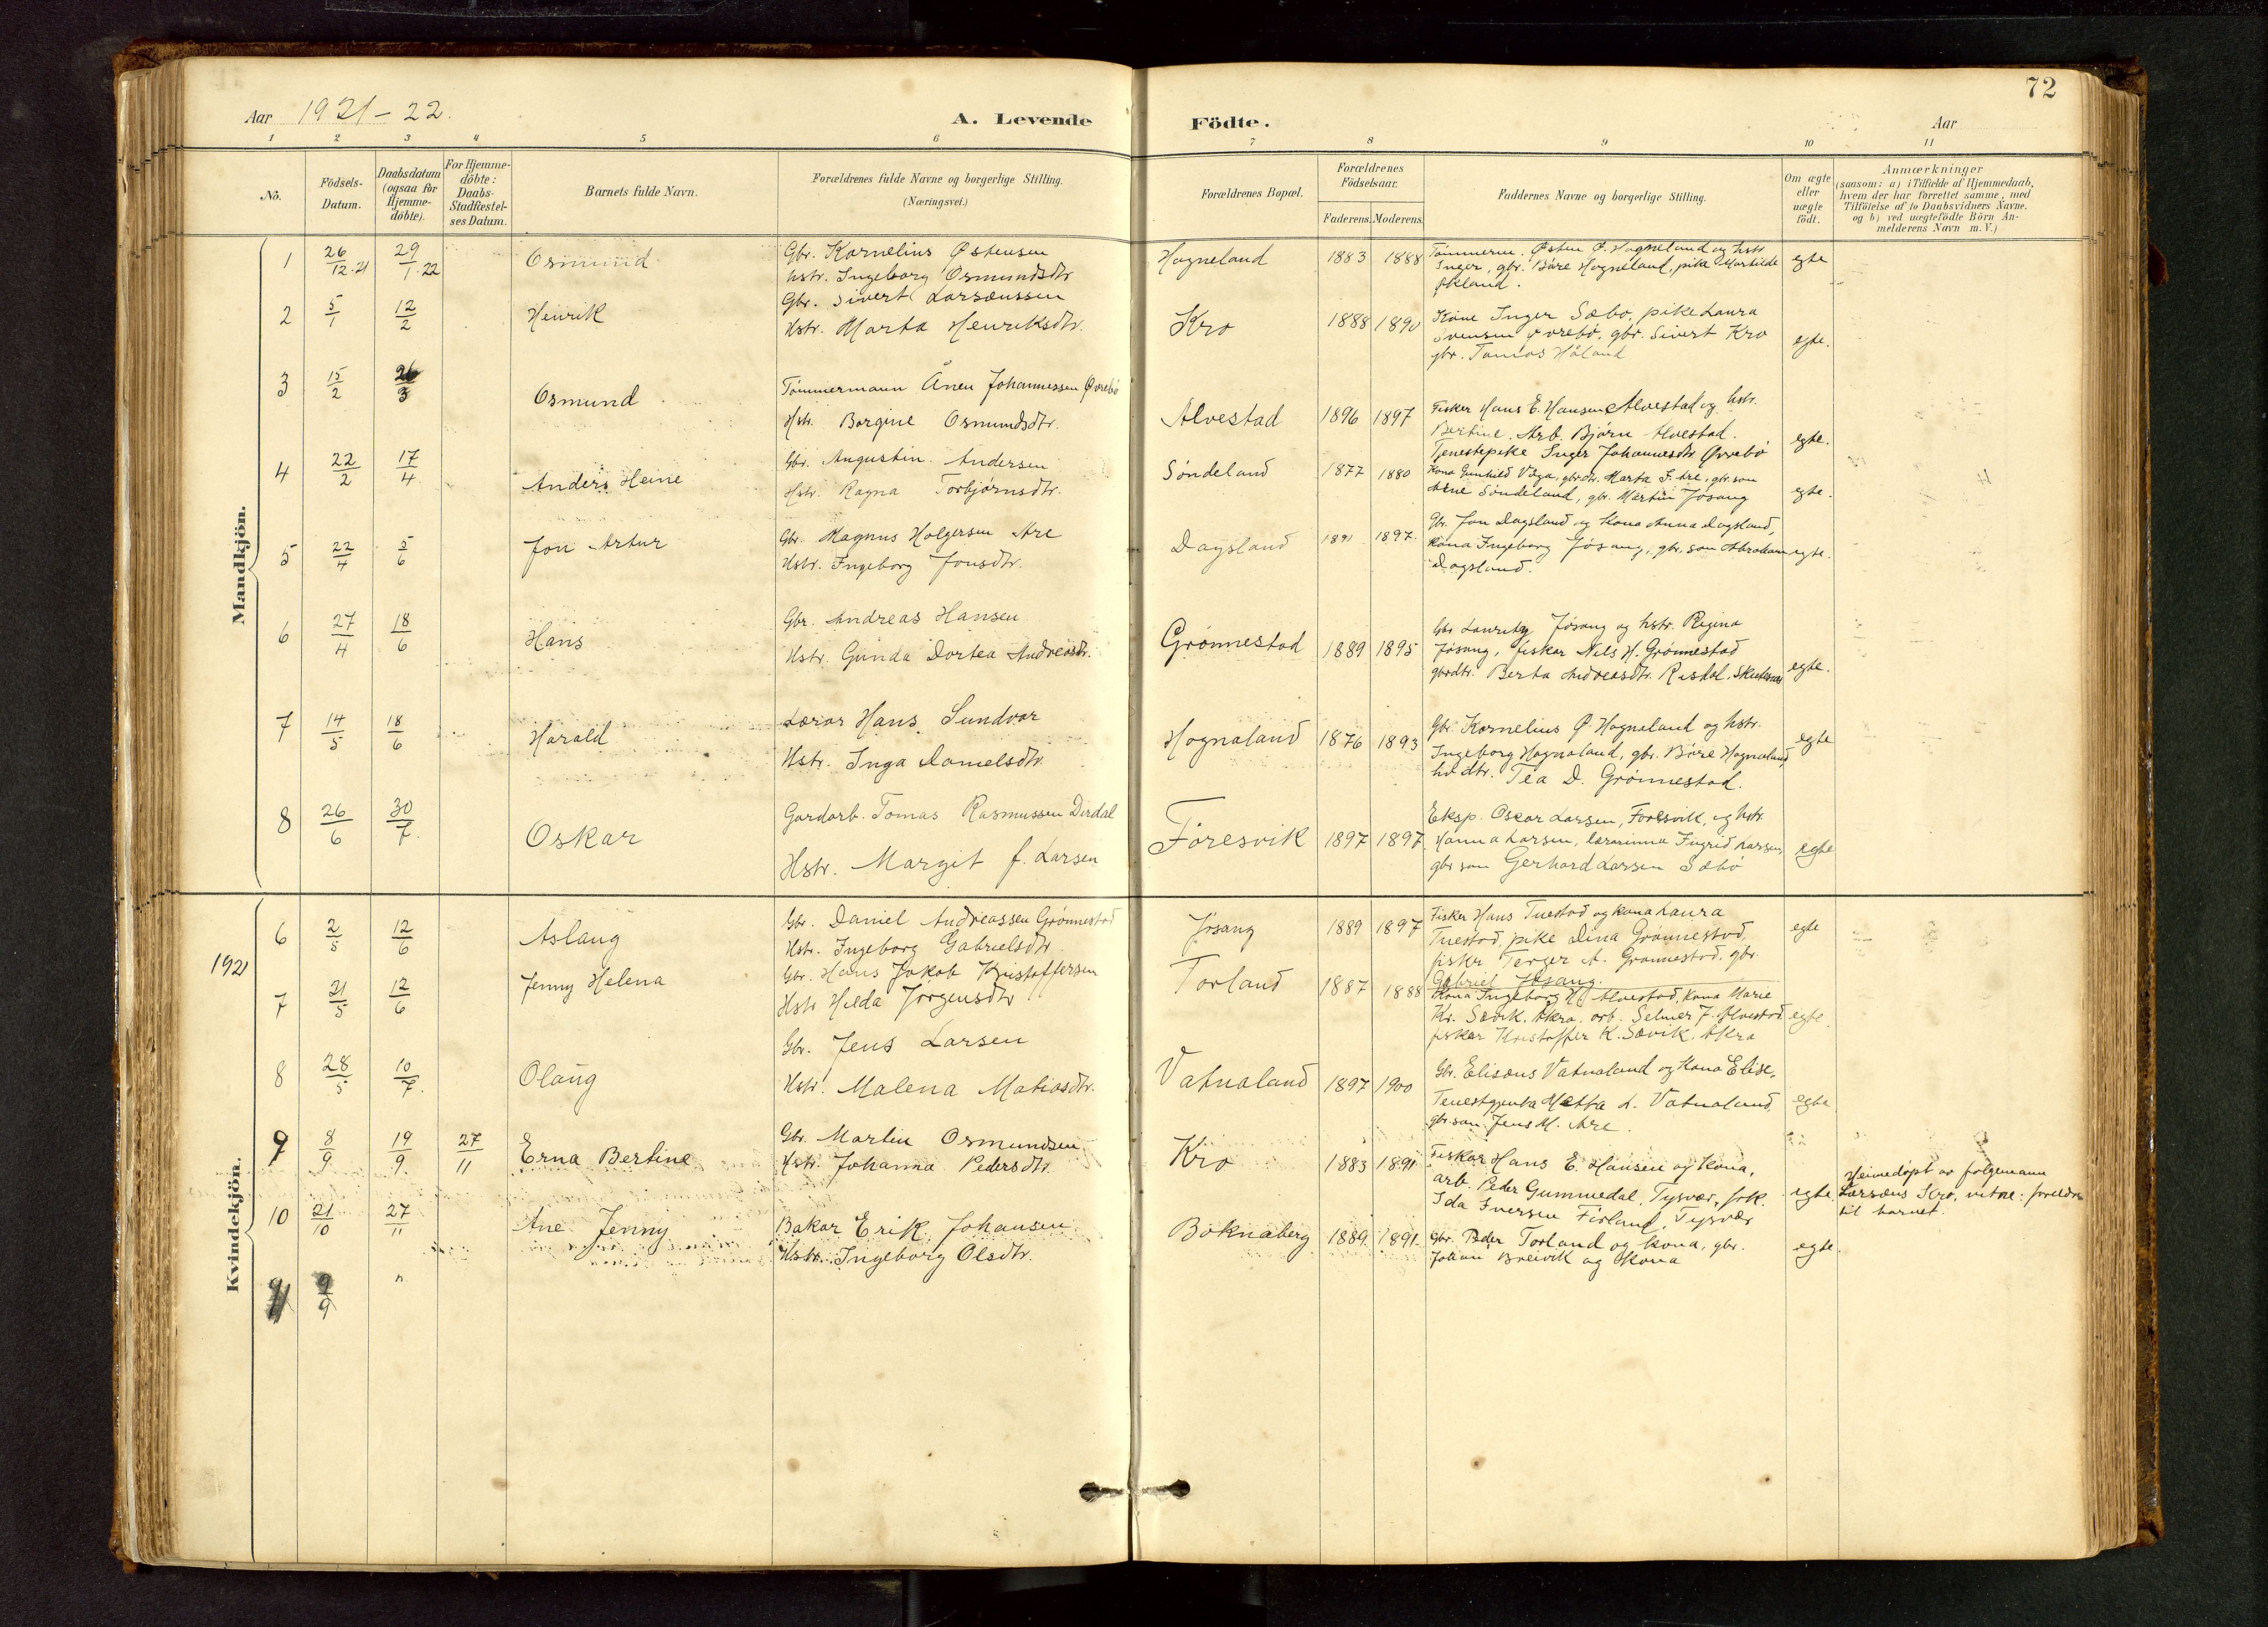 72
Aar 1921-22.
A. Levende Födte.
Aar
1 2 3 4 5 6 7 8 9 10 11
No.
Födsels-Datum.
Daabsdatum (ogsaa for Hjemmedöbte).
For Hjemmedöbte: Daabs-Stadfæstelses Datum.
Barnets fulde Navn.
Forældrenes fulde Navne og borgerlige Stilling.
(Næringsvei.)
Forældrenes Bopæl.
Forældrenes Födselsaar.
Faderens. Moderens.
Faddernes Navne og borgerlige Stilling.
Om ægte eller uægte födt.
Anmærkninger
(saasom: a) i Tilfælde af Hjemmedaab, hvem der har forrettet samme, med Tilföielse af to Daabsvidners Navne. og b) ved uægtefödte Börn Anmelderens Navn m. V.)
Mandkjön.
1 26/12.21 29/1.22 Osmund
Gbr. Kornelius Østensen
hstr. Ingeborg Osmundsdtr
Hogneland 1883 1888
Tømmerm. Østen Ø. Hogneland og hstr
Inger, gbr. Båre Hogneland, pike Mathilde
Økland.
egte
2 5/1 12/2 Henrik
Gbr. Sivert Larsæussen
Hstr. Marta Henriksdtr.
Kro 1888 1890
Kone Inger Sæbø, pike Laura
Svensen Øvrebø, gbr. Sivert Kro
gbr. Tomas Håland
egte.
3 15/2 26/3 Osmund
Tømmermann Ånen Johannessen Øvrebø
Hstr. Borgine Osmundsdtr.
Alvestad 1896 1897
Fisker Hans E. Hansen Alvestad og hstr.
Bertine. Arb. Bjørn Alvestad.
Tjenestepike Inger Johannesdtr Øvrebø
egte.
4 22/2 17/4 Anders Heine
Gbr. Augustin Andersen
Hstr. Ragna Torbjørnsdtr.
Søndeland 1877 1880
Kona Gunhild Våga, gbrdtr. Marta F. Are, gbr.son
Arne Søndeland, gbr. Martin Jøsang
egte.
5 22/4 5/6 Jon Artur
Gbr. Magnus Holgersen Are
Hstr. Ingeborg Jonsdtr.
Dagsland 1891 1897.
Gbr. Jon Dagsland og kona Anna Dagsland,
kona Ingeborg Jøsang, gbr. son Abraham
Dagsland.
egte.
6 27/4 18/6 Hans
Gbr. Andreas Hansen
Hstr. Gunda Dortea Andreasdtr.
Grønnestad 1889 1895
Gbr. Jøsang og hstr. Regina
Jøsang, fiskar Nils H. Grønnestad
gbrdtr. Berta Andreasdtr.
egte.
7 14/5 18/6 Harald
Lærar Hans Sundvor
Hstr. Inga Danielsdtr.
Hognaland 1876 1893
Gbr. Kornelius Ø. Hognaland og hstr.
Ingeborg Hognaland, gbr. Båre Hognaland,
hv dtr. Tea D. Grønnestad.
egte
8 26/6 30/7. Oskar
Gardarb. Tomas Rasmussen Dirdal
Hstr. Margit f. Larsen
Føresvik 1897 1897
Eksp. Oscar Larsen, Foresvik, og hstr.
Hanna Larsen, lærarinna Ingrid Larsen,
gbr son Gerhard Larsen Sæbø
egte
1921
Kvindekjön.
6 2/5 12/6 Aslaug
Gbr. Daniel Andreassen Grønnestad
Hstr. Ingeborg Gabrielsdtr.
Jøsang 1889 1897
Fisker Hans Tuestad og kona Laura
Tuestad, pike Dina Grønnestad,
fisker Terger A. Grønnestad, gbr.
Gabriel Jøsang.
egte
7 21/5 12/6 Jenny Helena
Gbr. Hans Jakob Kristoffersen
Hstr Hilda Jørgensdtr
Torland 1887 1888
Kona Ingeborg H. Alvestad, kona Marie
Kr. Sævik, Åkra, arb. Selmer J. Alvestad
fisker Kristoffer K. Sævik, Åkra
egte.
8 28/5 10/7. Olaug
Gbr. Jens Larsen
Hstr. Malena Matiasdtr.
Vatnaland 1897 1900
Gbr. Elisæus Vatnaland og kona Elise,
Tenestgjenta Metta L. Vatnaland,
gbr.son Jens M. Are.
egte
9 8/9 19/9 27/11 Erna Bertine
Gbr. Martin Osmundsen
Hstr. Johanna Pedersdtr.
Kro 1883 1891
Fiskar Hans E. Hansen og kona,
arb. Peder Gummedal, Tysvær, frk.
Ida Iversen Førland, Tysvær
egte.
Heimedøpt av følgemann
Larsæus Kro, vitne: foreldre
til barnet.
10 21/10 27/11 Ane Jenny
Bakar Erik Johansen
Hstr. Ingeborg Olsdtr.
Boknaberg 1889. 1891.
Gbr. Peder Torland og kona, gbr.
Johan Breivik og kona
egte.
9/9 "